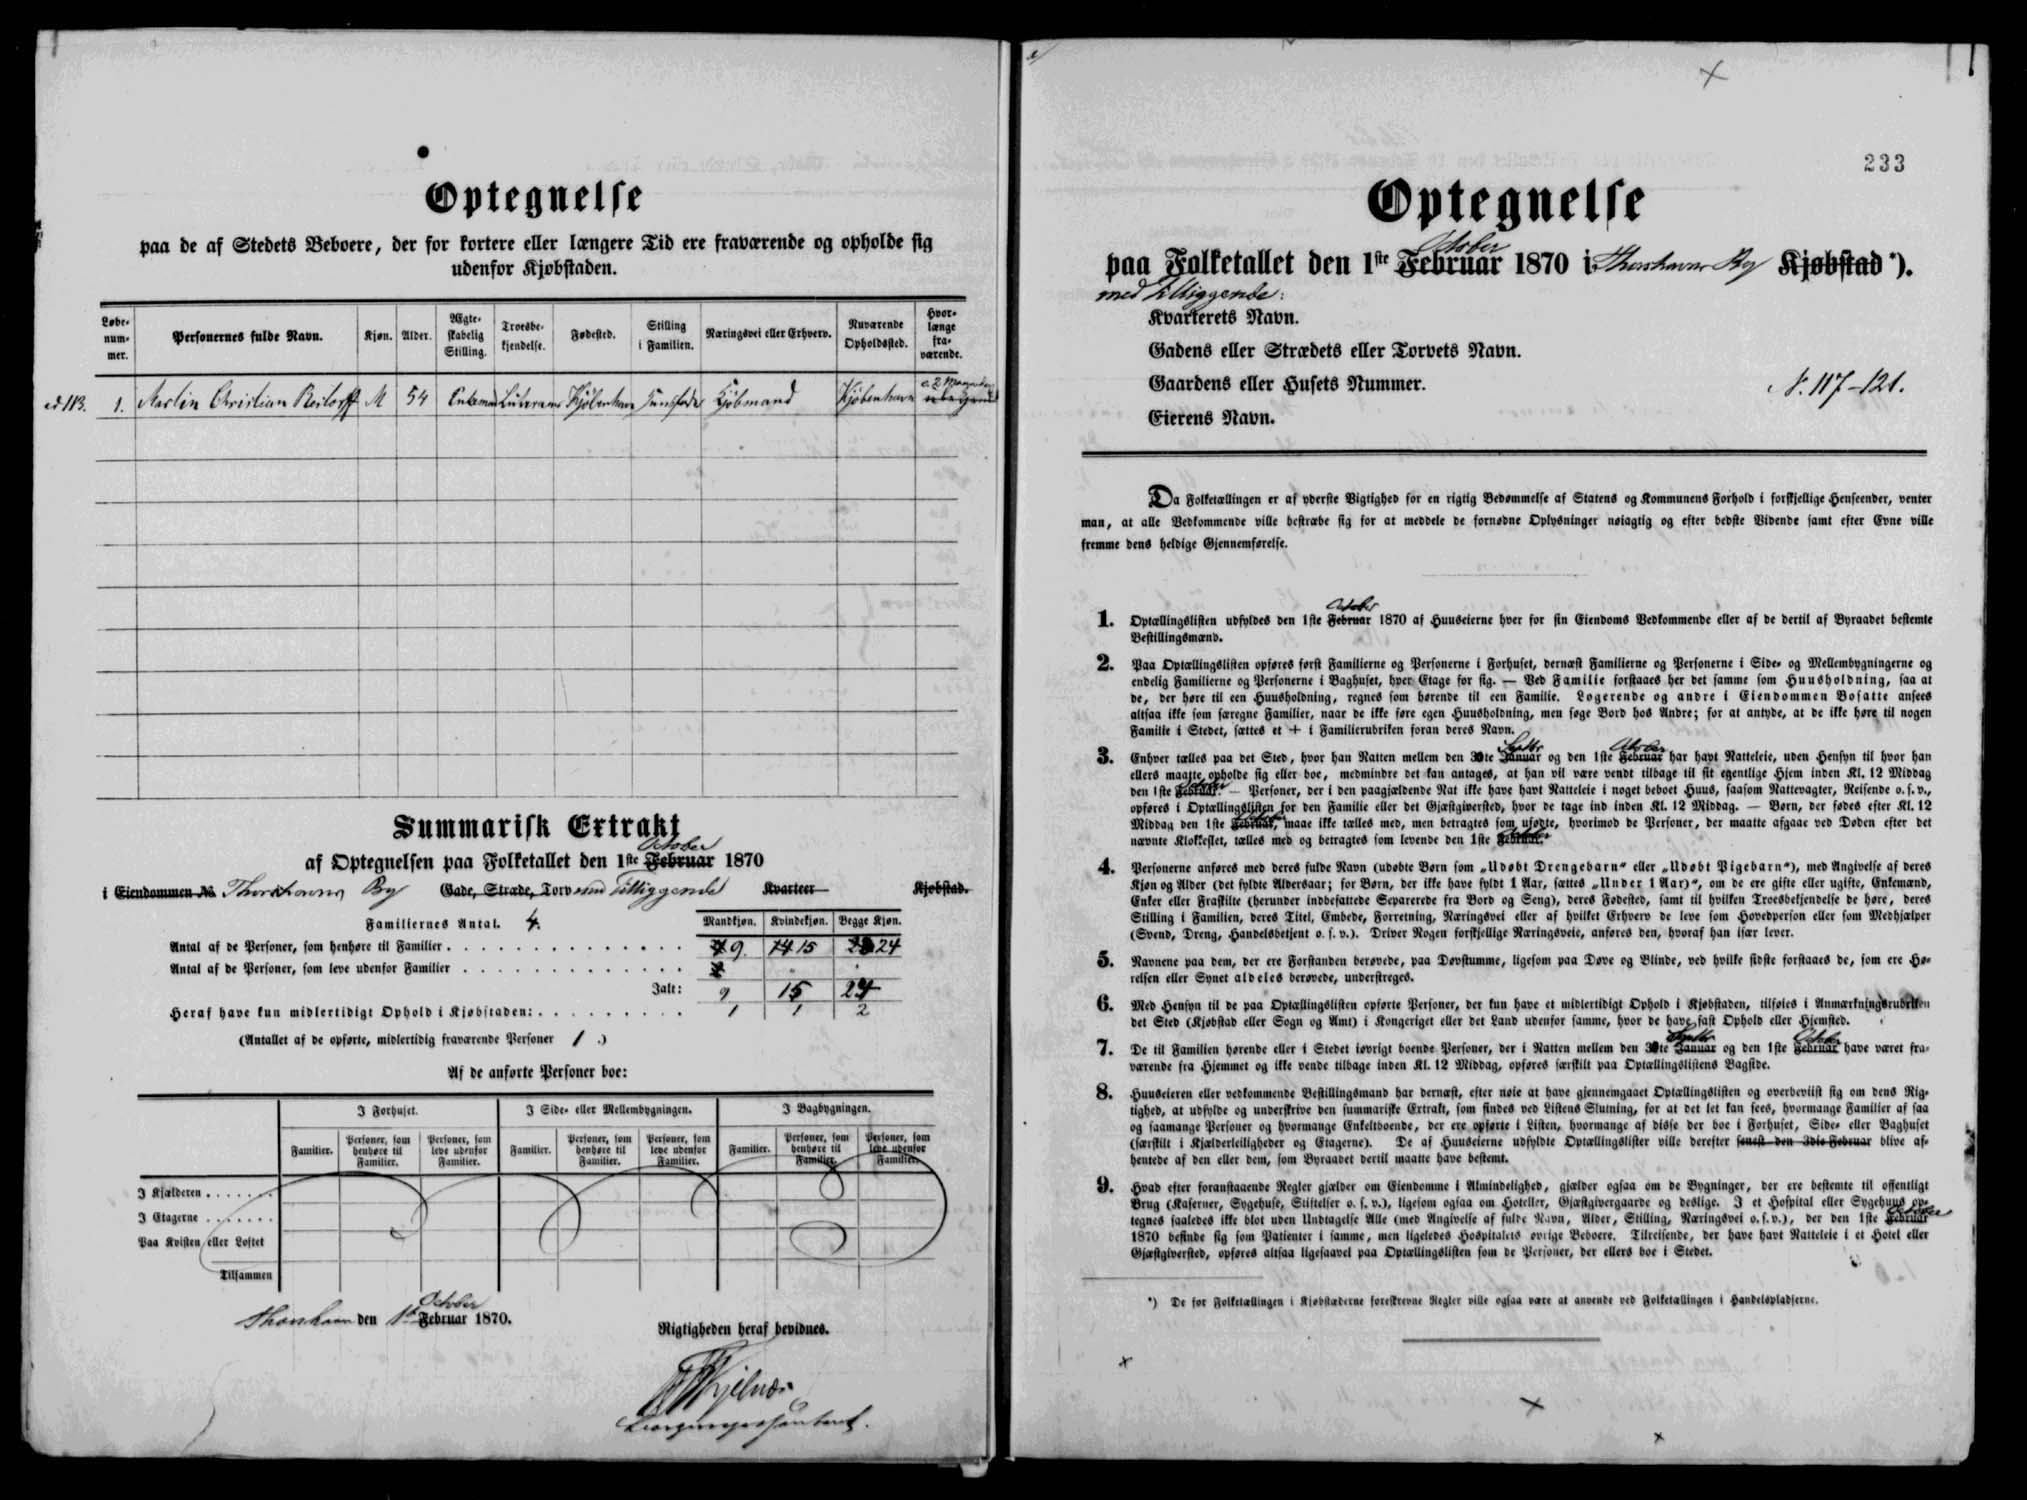 Optegnelse
paa de af Stedets Beboere, der for kortere eller længere Tid ere fraværende og opholde sig
udenfor Kjøbstaden.
Løbe-num-mer. Personernes fulde Navn. Kjøn. Alder. Ægte-skabelig Stilling. Troesbe-kjendelse. Fødested. Stilling i Familien. Næringsvei eller Erhverv. Nuværende Opholdssted. Hvor-længe fra-værende.
ad 113. 1. Christian M 54 Kjöbenhavn Huusfader Kjöbmand Kjöbenhavn
Summarisk Extrakt
October
af Optegnelsen paa Folketallet den 1ste Februar 1870
i Eiendommen No. Thorshavns By Gade, Stræde, Torv med Tilliggende Kvarteer Kjøbstad.
Familiernes Antal. 4.
Mandkjøn. Kvindekjøn. Begge Kjøn.
Antal af de Personer, som henhøre til Familier 9. 14 15 24
Antal af de Personer, som leve udenfor Familier
Ialt: 9 15 24
Heraf have kun midlertidigt Ophold i Kjøbstaden: 1 1 2
(Antallet af de opførte, midlertidig fraværende Personer 1.)
Af de anførte Personer boe:
I Forhuset. I Side- eller Mellembygningen. I Bagbygningen.
Familier. Personer, som henhøre til Familier. Personer, som leve udenfor Familier. Familier. Personer, som henhøre til Familier. Personer, som leve udenfor Familier. Familier. Personer, som henhøre til Familier. Personer, som leve udenfor Familier.
I Kjælderen
I Etagerne
Paa Kvisten eller Loftet
Tilsammen
October
Thorshavn den 1ste Februar 1870.
Rigtigheden heraf bevidnes.
233
Optegnelse
October
paa Folketallet den 1ste Februar 1870 i Thorshavns By Kjøbstad*).
med Tilliggende:
Kvarterets Navn.
Gadens eller Strædets eller Torvets Navn.
Gaardens eller Husets Nummer. No. 117-121.
Eierens Navn.
Da Folketællingen er af yderste Vigtighed for en rigtig Bedømmelse af Statens og Kommunens Forhold i forskjellige Henseender, venter
man, at alle Vedkommende ville bestræbe sig for at meddele de fornødne Oplysninger nøiagtig og efter bedste Vidende samt efter Evne ville
fremme dens heldige Gjennemførelse.
October
1. Optællingslisten udfyldes den 1ste Februar 1870 af Huuseierne hver for sin Eiendoms Vedkommende eller af de dertil af Byraadet bestemte
Bestillingsmænd.
2. Paa Optællingslisten opføres først Familierne og Personerne i Forhuset, dernæst Familierne og Personerne i Side- og Mellembygningerne og
endelig Familierne og Personerne i Baghuset, hver Etage for sig. — Ved Familie forstaaes her det samme som Huusholdning, saa at
de, der høre til een Huusholdning, regnes som hørende til een Familie. Logerende og andre i Eiendommen Bosatte ansees
altsaa ikke som særegne Familier, naar de ikke føre egen Huusholdning, men søge Bord hos Andre; for at antyde, at de ikke høre til nogen
Familie i Stedet, sættes et + i Familierubriken foran deres Navn.
Septbr October
3. Enhver tælles paa det Sted, hvor han Natten mellem den 30te Januar og den 1ste Februar har havt Natteleie, uden Hensyn til hvor han
ellers maatte opholde sig eller boe, medmindre det kan antages, at han vil være vendt tilbage til sit egentlige Hjem inden Kl. 12 Middag
den 1ste Februar. — Personer, der i den paagjældende Nat ikke have havt Natteleie i noget beboet Huus, saasom Nattevagter, Reisende o. s. v.,
opføres i Optællingslisten for den Familie eller det Gjæstgiversted, hvor de tage ind inden Kl. 12 Middag. — Børn, der fødes efter Kl. 12
Middag den 1ste Februar, maae ikke tælles med, men betragtes som ufødte, hvorimod de Personer, der maatte afgaae ved Døden efter det
nævnte Klokkeslet, tælles med og betragtes som levende den 1ste Februar.
4. Personerne anføres med deres fulde Navn (udøbte Børn som „Udøbt Drengebarn“ eller „Udøbt Pigebarn“), med Angivelse af deres
Kjøn og Alder (det fyldte Aldersaar; for Børn, der ikke have fyldt 1 Aar, sættes „Under 1 Aar)“, om de ere gifte eller ugifte, Enkemænd,
Enker eller Fraskilte (herunder indbefattede Separerede fra Bord og Seng), deres Fødested, samt til hvilken Troesbekjendelse de høre, deres
Stilling i Familien, deres Titel, Embede, Forretning, Næringsvei eller af hvilket Erhverv de leve som Hovedperson eller som Medhjælper
(Svend, Dreng, Handelsbetjent o. s. v.). Driver Nogen forskjellige Næringsveie, anføres den, hvoraf han især lever.
5. Navnene paa dem, der ere Forstanden berøvede, paa Døvstumme, ligesom paa Døve og Blinde, ved hvilke sidste forstaaes de, som ere Hø-
relsen eller Synet aldeles berøvede, understreges.
6. Med Hensyn til de paa Optællingslisten opførte Personer, der kun have et midlertidigt Ophold i Kjøbstaden, tilføies i Anmærkningsrubriken
det Sted (Kjøbstad eller Sogn og Amt) i Kongeriget eller det Land udenfor samme, hvor de have fast Ophold eller Hjemsted.
Septbr October
7. De til Familien hørende eller i Stedet iøvrigt boende Personer, der i Natten mellem den 30te Januar og den 1ste Februar have været fra-
værende fra Hjemmet og ikke vende tilbage inden Kl. 12 Middag, opføres særskilt paa Optællingslistens Bagside.
8. Huuseieren eller vedkommende Bestillingsmand har dernæst, efter nøie at have gjennemgaaet Optællingslisten og overbeviist sig om dens Rig-
tighed, at udfylde og underskrive den summariske Extrakt, som findes ved Listens Slutning, for at det let kan sees, hvormange Familier af saa
og saamange Personer og hvormange Enkeltboende, der ere opførte i Listen, hvormange af disse der boe i Forhuset, Side- eller Baghuset
(særskilt i Kjælderleiligheder og Etagerne). De af Huuseierne udfyldte Optællingslister ville derefter senest den 3die Februar blive af-
hentede af den eller dem, som Byraadet dertil maatte have bestemt.
9. Hvad efter foranstaaende Regler gjælder om Eiendomme i Almindelighed, gjælder ogsaa om de Bygninger, der ere bestemte til offentligt
Brug (Kaserner, Sygehuse, Stiftelser o. s. v.), ligesom ogsaa om Hoteller, Gjæstgivergaarde og deslige. I et Hospital eller Sygehuus op-
October
tegnes saaledes ikke blot uden Undtagelse Alle (med Angivelse af fulde Navn, Alder, Stilling, Næringsvei o. s. v.), der den 1ste Februar
1870 befinde sig som Patienter i samme, men ligeledes Hospitalets øvrige Beboere. Tilreisende, der have havt Natteleie i et Hotel eller
Gjæstgiversted, opføres altsaa ligesaavel paa Optællingslisten som de Personer, der ellers boe i Stedet.
*) De for Folketællingen i Kjøbstæderne foreskrevne Regler ville ogsaa være at anvende ved Folketællingen i Handelspladserne.